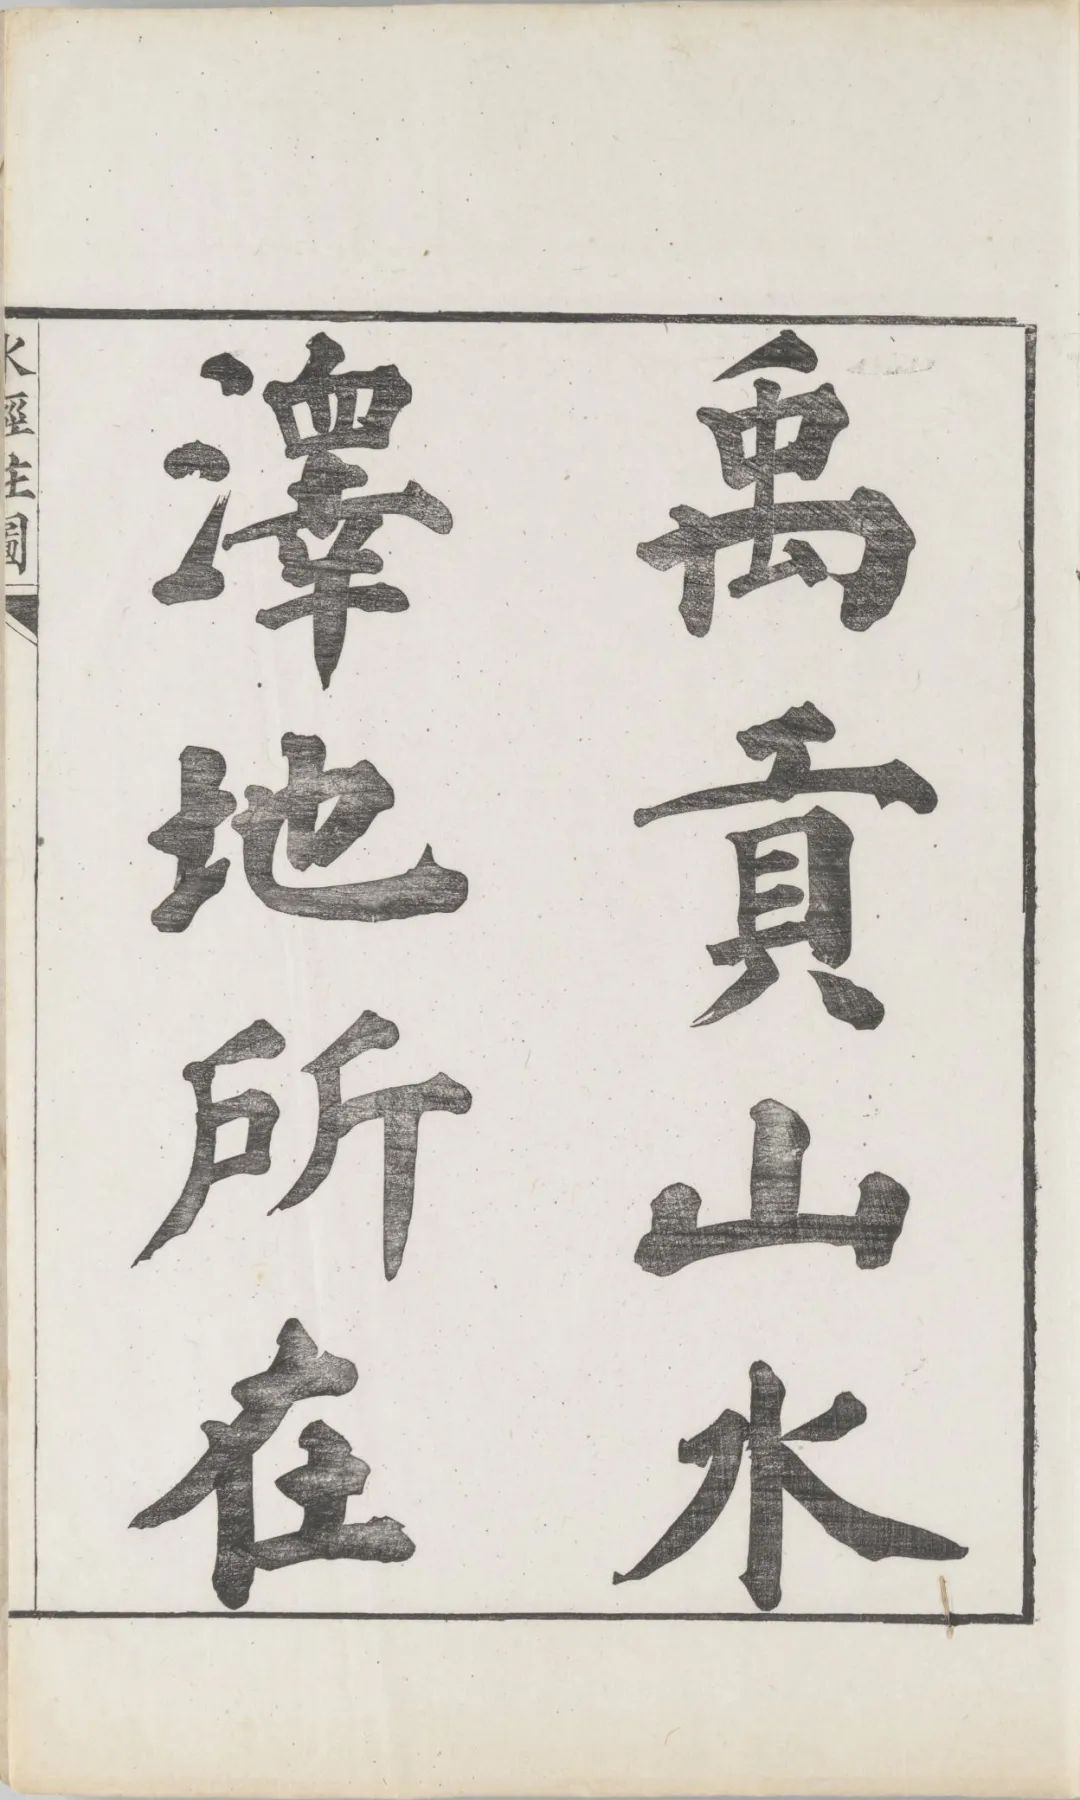 禹貢山水
澤地所在
水經注圖